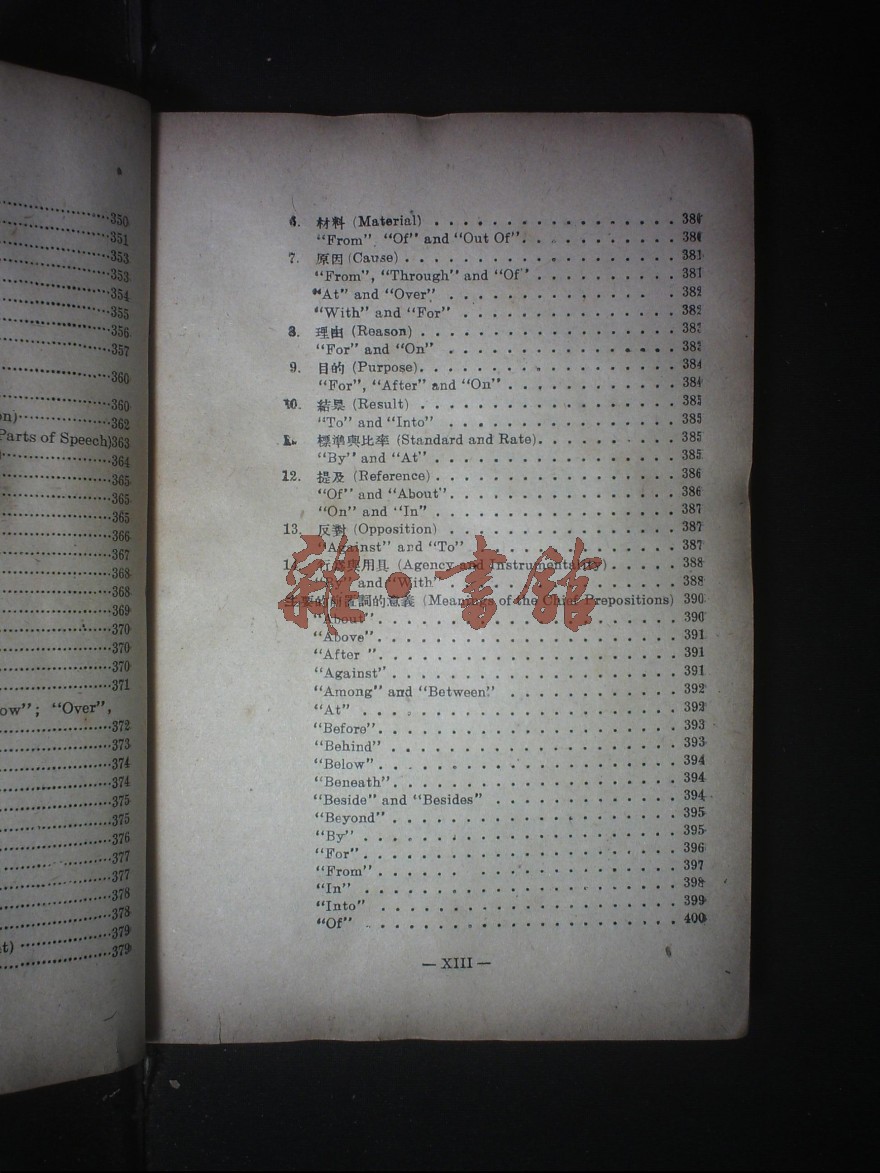 350
351
353
353
354
355
356
357
360
360
on) 362
Parts of Speech)363
364
365
365
365
366
367
368
368
369
370
370
370
371
ow"; "Over",
372
373
374
374
375
375
376
377
377
378
378
379
t) 379
6. 材料 (Material) . . . . . . . . . . . . . . . . . 381
"From" "Of" and "Out Of". . . . . . . . . . . 381
7. 原因 (Cause) . . . . . . . . . . . . . . . . . . . 381
"From", "Through" and "Of" . . . . . . . . . . 381
"At" and "Over" . . . . . . . . . . . . . . . . 382
"With" and "For" . . . . . . . . . . . . . . . 382
8. 理由 (Reason) . . . . . . . . . . . . . . . . . . 383
"For" and "On" . . . . . . . . . . . . . . . . 383
9. 目的 (Purpose). . . . . . . . . . . . . . . . . . 384
"For", "After" and "On" . . . . . . . . . . . . 384
10. 結果 (Result) . . . . . . . . . . . . . . . . . . 385
"To" and "Into" . . . . . . . . . . . . . . . . 385
標準與比率 (Standard and Rate). . . . . . . . . . 385
"By" and "At" . . . . . . . . . . . . . . . . . 385
12. 提及 (Reference) . . . . . . . . . . . . . . . . . 386
"Of" and "About". . . . . . . . . . . . . . . . 386
"On" and "In" . . . . . . . . . . . . . . . . . 387
13. 反對 (Opposition) . . . . . . . . . . . . . . . . 387
"Against" and "To" . . . . . . . . . . . . . . . 387
14. 行為與用具 (Agency and Instrumentality) . . . . . 388
"By" and "With" . . . . . . . . . . . . . . . . 388
主要的前置詞的意義 (Meanings of the Chief Prepositions) 390
"About". . . . . . . . . . . . . . . . . . . . . 390
"Above". . . . . . . . . . . . . . . . . . . . . 391
"After ". . . . . . . . . . . . . . . . . . . . . 391
"Against". . . . . . . . . . . . . . . . . . . . 391
"Among" and "Between" . . . . . . . . . . . . 392
"At" . . . . . . . . . . . . . . . . . . . . . . 392
"Before". . . . . . . . . . . . . . . . . . . . . 393
"Behind" . . . . . . . . . . . . . . . . . . . . 393
"Below". . . . . . . . . . . . . . . . . . . . . 394
"Beneath". . . . . . . . . . . . . . . . . . . . 394
"Beside" and "Besides" . . . . . . . . . . . . . 394
"Beyond" . . . . . . . . . . . . . . . . . . . . 395
"By" . . . . . . . . . . . . . . . . . . . . . . 395
"For". . . . . . . . . . . . . . . . . . . . . . 396
"From". . . . . . . . . . . . . . . . . . . . . . 397
"In" . . . . . . . . . . . . . . . . . . . . . . 398
"Into" . . . . . . . . . . . . . . . . . . . . . 399
"Of" . . . . . . . . . . . . . . . . . . . . . . 400
— XIII —
雜·書館